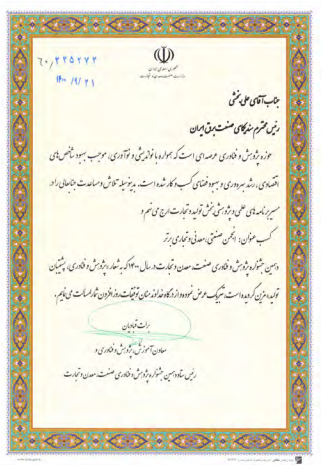 ۶۰/۲۳۵۲۷۲
۱۴۰۰/۹/۲۱
جمهوری اسلامی ایران
وزارت صنعت، معدن و تجارت
جناب آقای علی بخشی
رئیس محترم سندیکای صنعت برق ایران
حوزه پژوهش و فناوری عرصه‌ای است که همواره با نواندیشی و نوآوری، موجب بهبود شاخص‌های
اقتصادی، رشد بهره‌وری و بهبود فضای کسب و کار شده است. بدینوسیله تلاش و مساعدت جنابعالی را در
مسیر برنامه‌های علمی و پژوهشی بخش تولید و تجارت ارج می‌نهم و
کسب عنوان: انجمن صنعتی، معدنی و تجاری برتر
دهمین جشنواره پژوهش و فناوری صنعت، معدن و تجارت در سال ۱۴۰۰ که به شعار، پژوهش و فناوری، پشتیبان
تولید، مزین گردیده است، تبریک عرض نموده و از درگاه خداوند منان توفیقات روزافزون شما را مسالت می‌نمایم.
برات قنادیان
معاون آموزش، پژوهش و فناوری و
رئیس ستاد دهمین جشنواره پژوهش و فناوری صنعت، معدن و تجارت